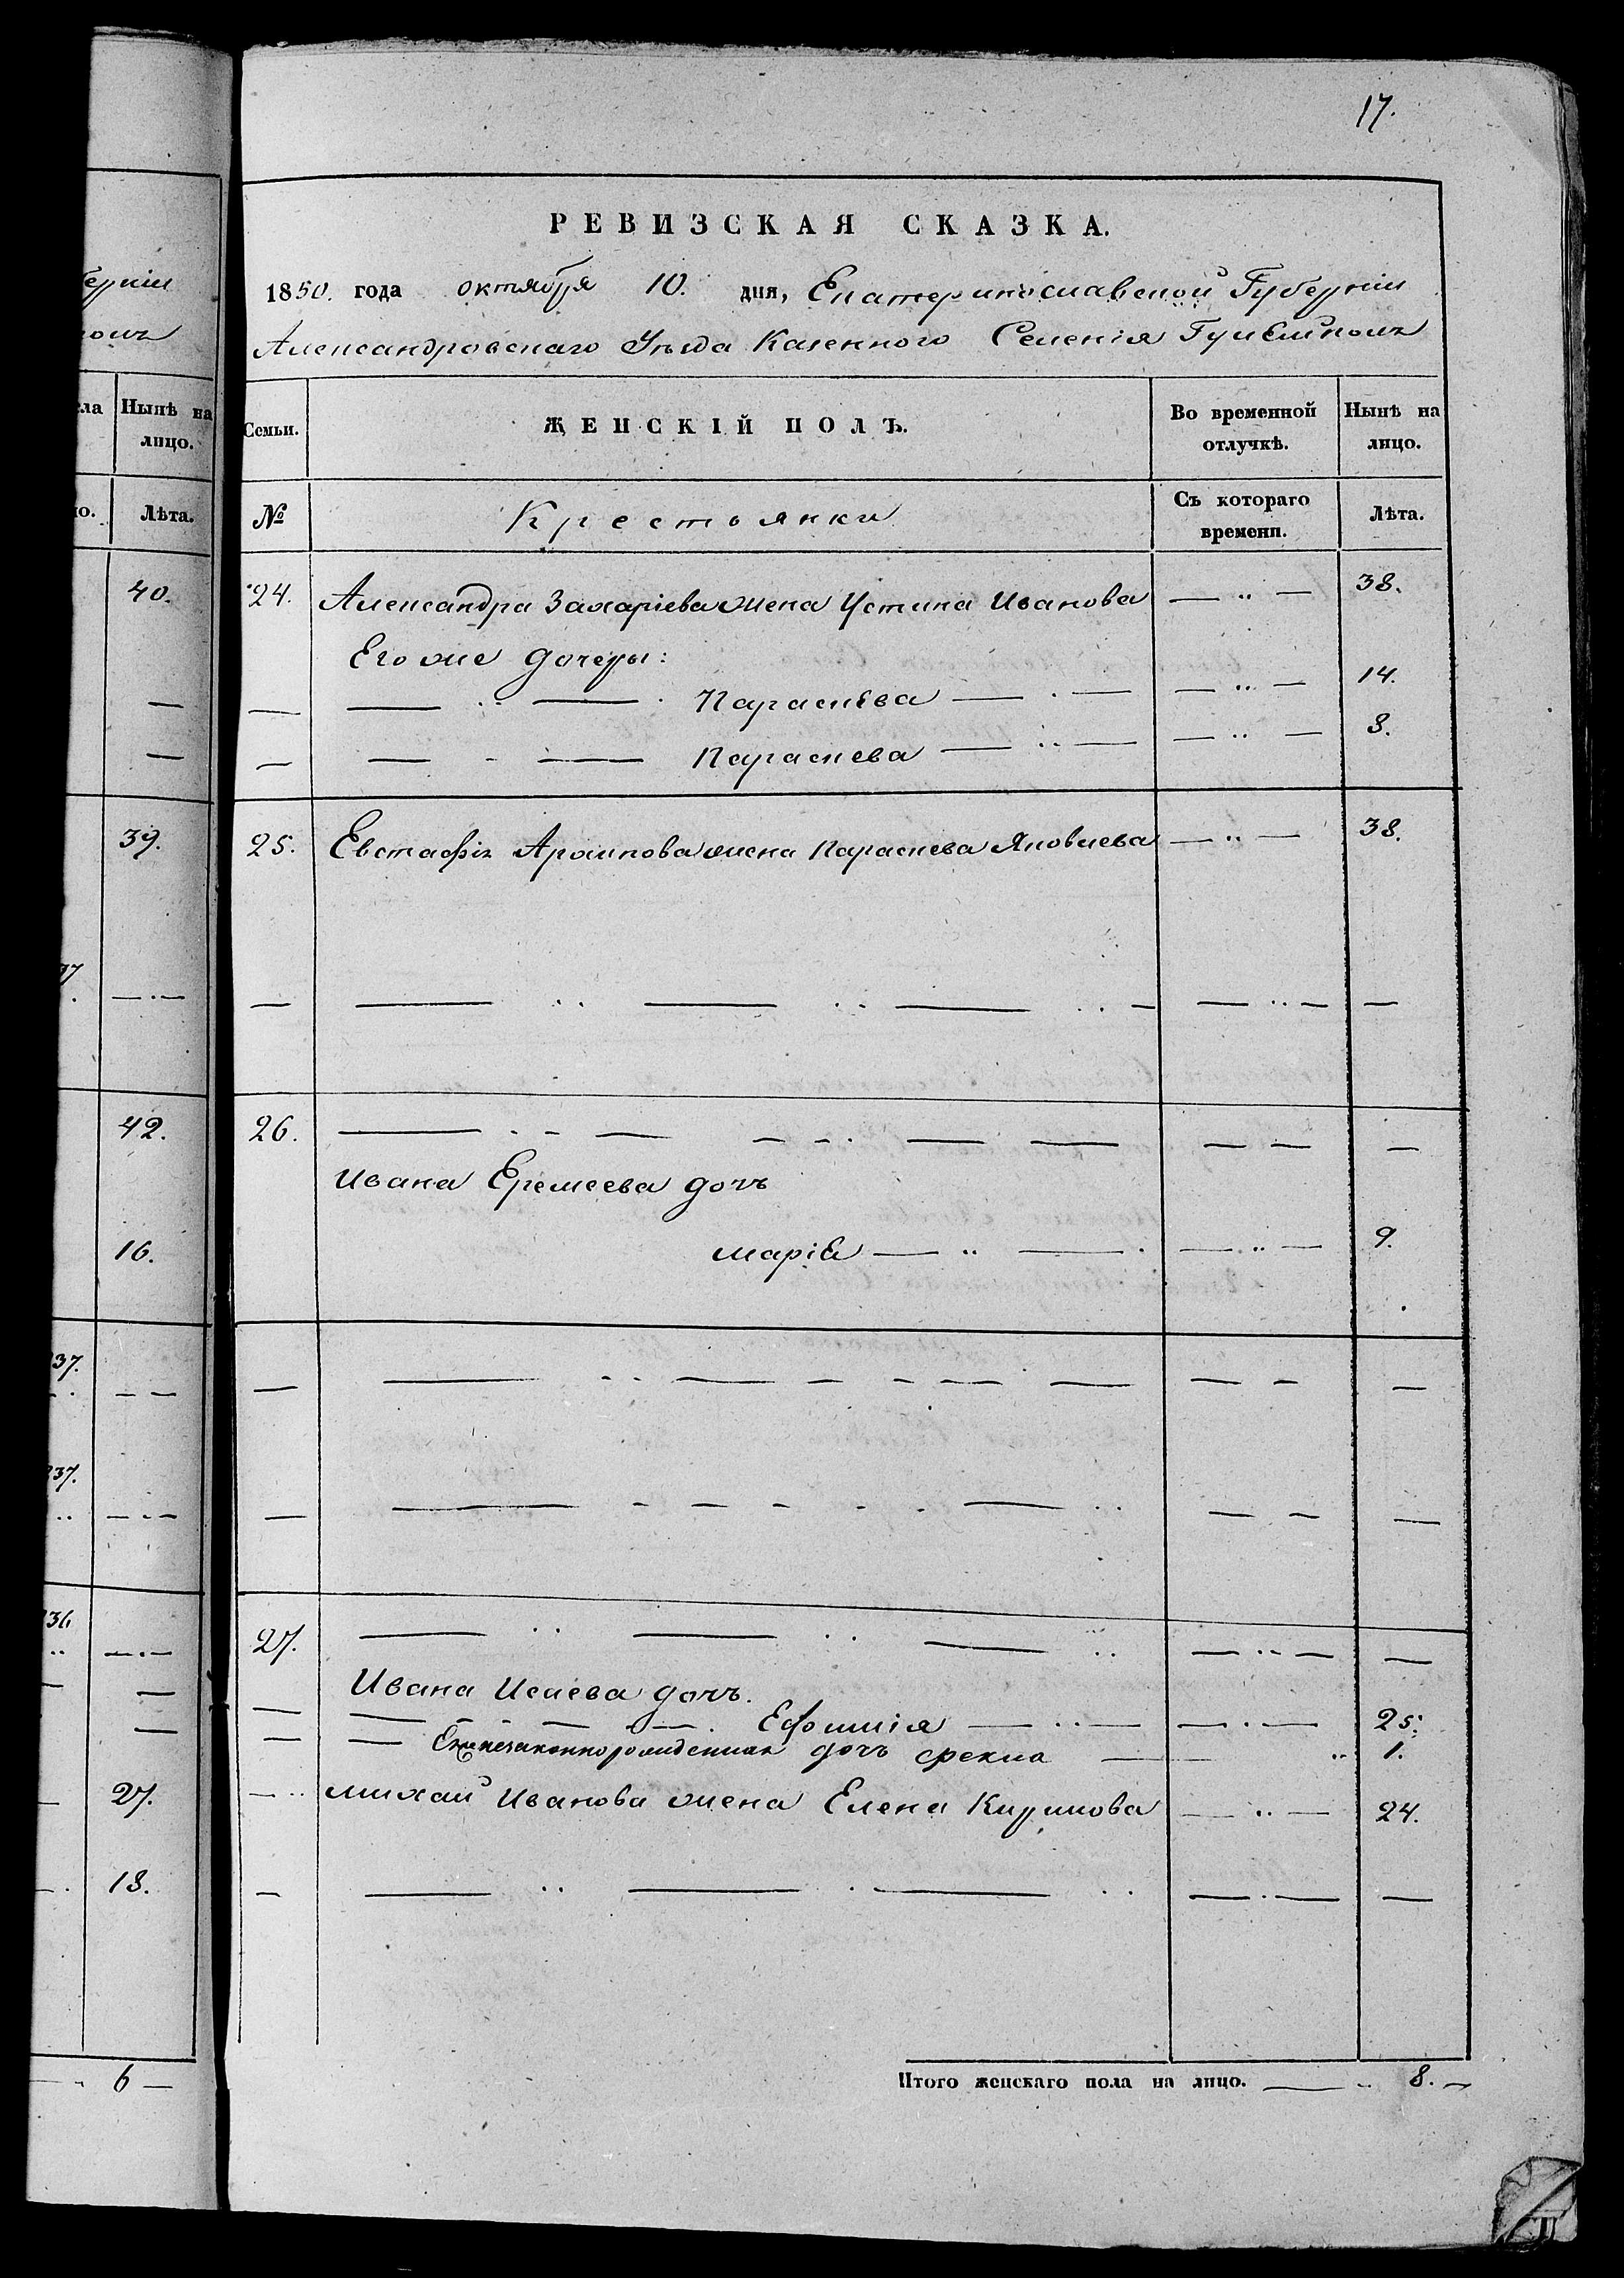 17.
РЕВИЗСКАЯ СКАЗКА.
1850. года октября 10. дня, Екатеринославской Губернiи
Александровскаго Уезда Казенного Селенiя Гуляйполъ
Семьи.
ЖЕНСКIЙ ПОЛЪ.
Во временной отлучкѣ.
Нынѣ на лицо.
№
Крестьянки
Съ котораго времени.
Лѣта.
24. Александра Захарiева жена Устина Иванова — „ — 38.
Его же дочеры:
— Параскева — „ — 14.
— Параскева — „ — 8.
25. Евстафiя Архипова жена Параскева Яковлева — „ — 38.
26.
Ивана Еремеева дочь
марiя — „ — 9.
27.
Ивана Исаева дочь.
Ефимiя — 25.
незаконнорожденная дочь 1.
михайл Иванова жена Елена Кирилова — „ — 24.
Итого женскаго пола на лицо. — 8. —
ернiи
ла
Нынѣ на
лицо.
Лѣта.
40.
39.
37
42.
16.
37.
37.
36
27.
18.
6 —